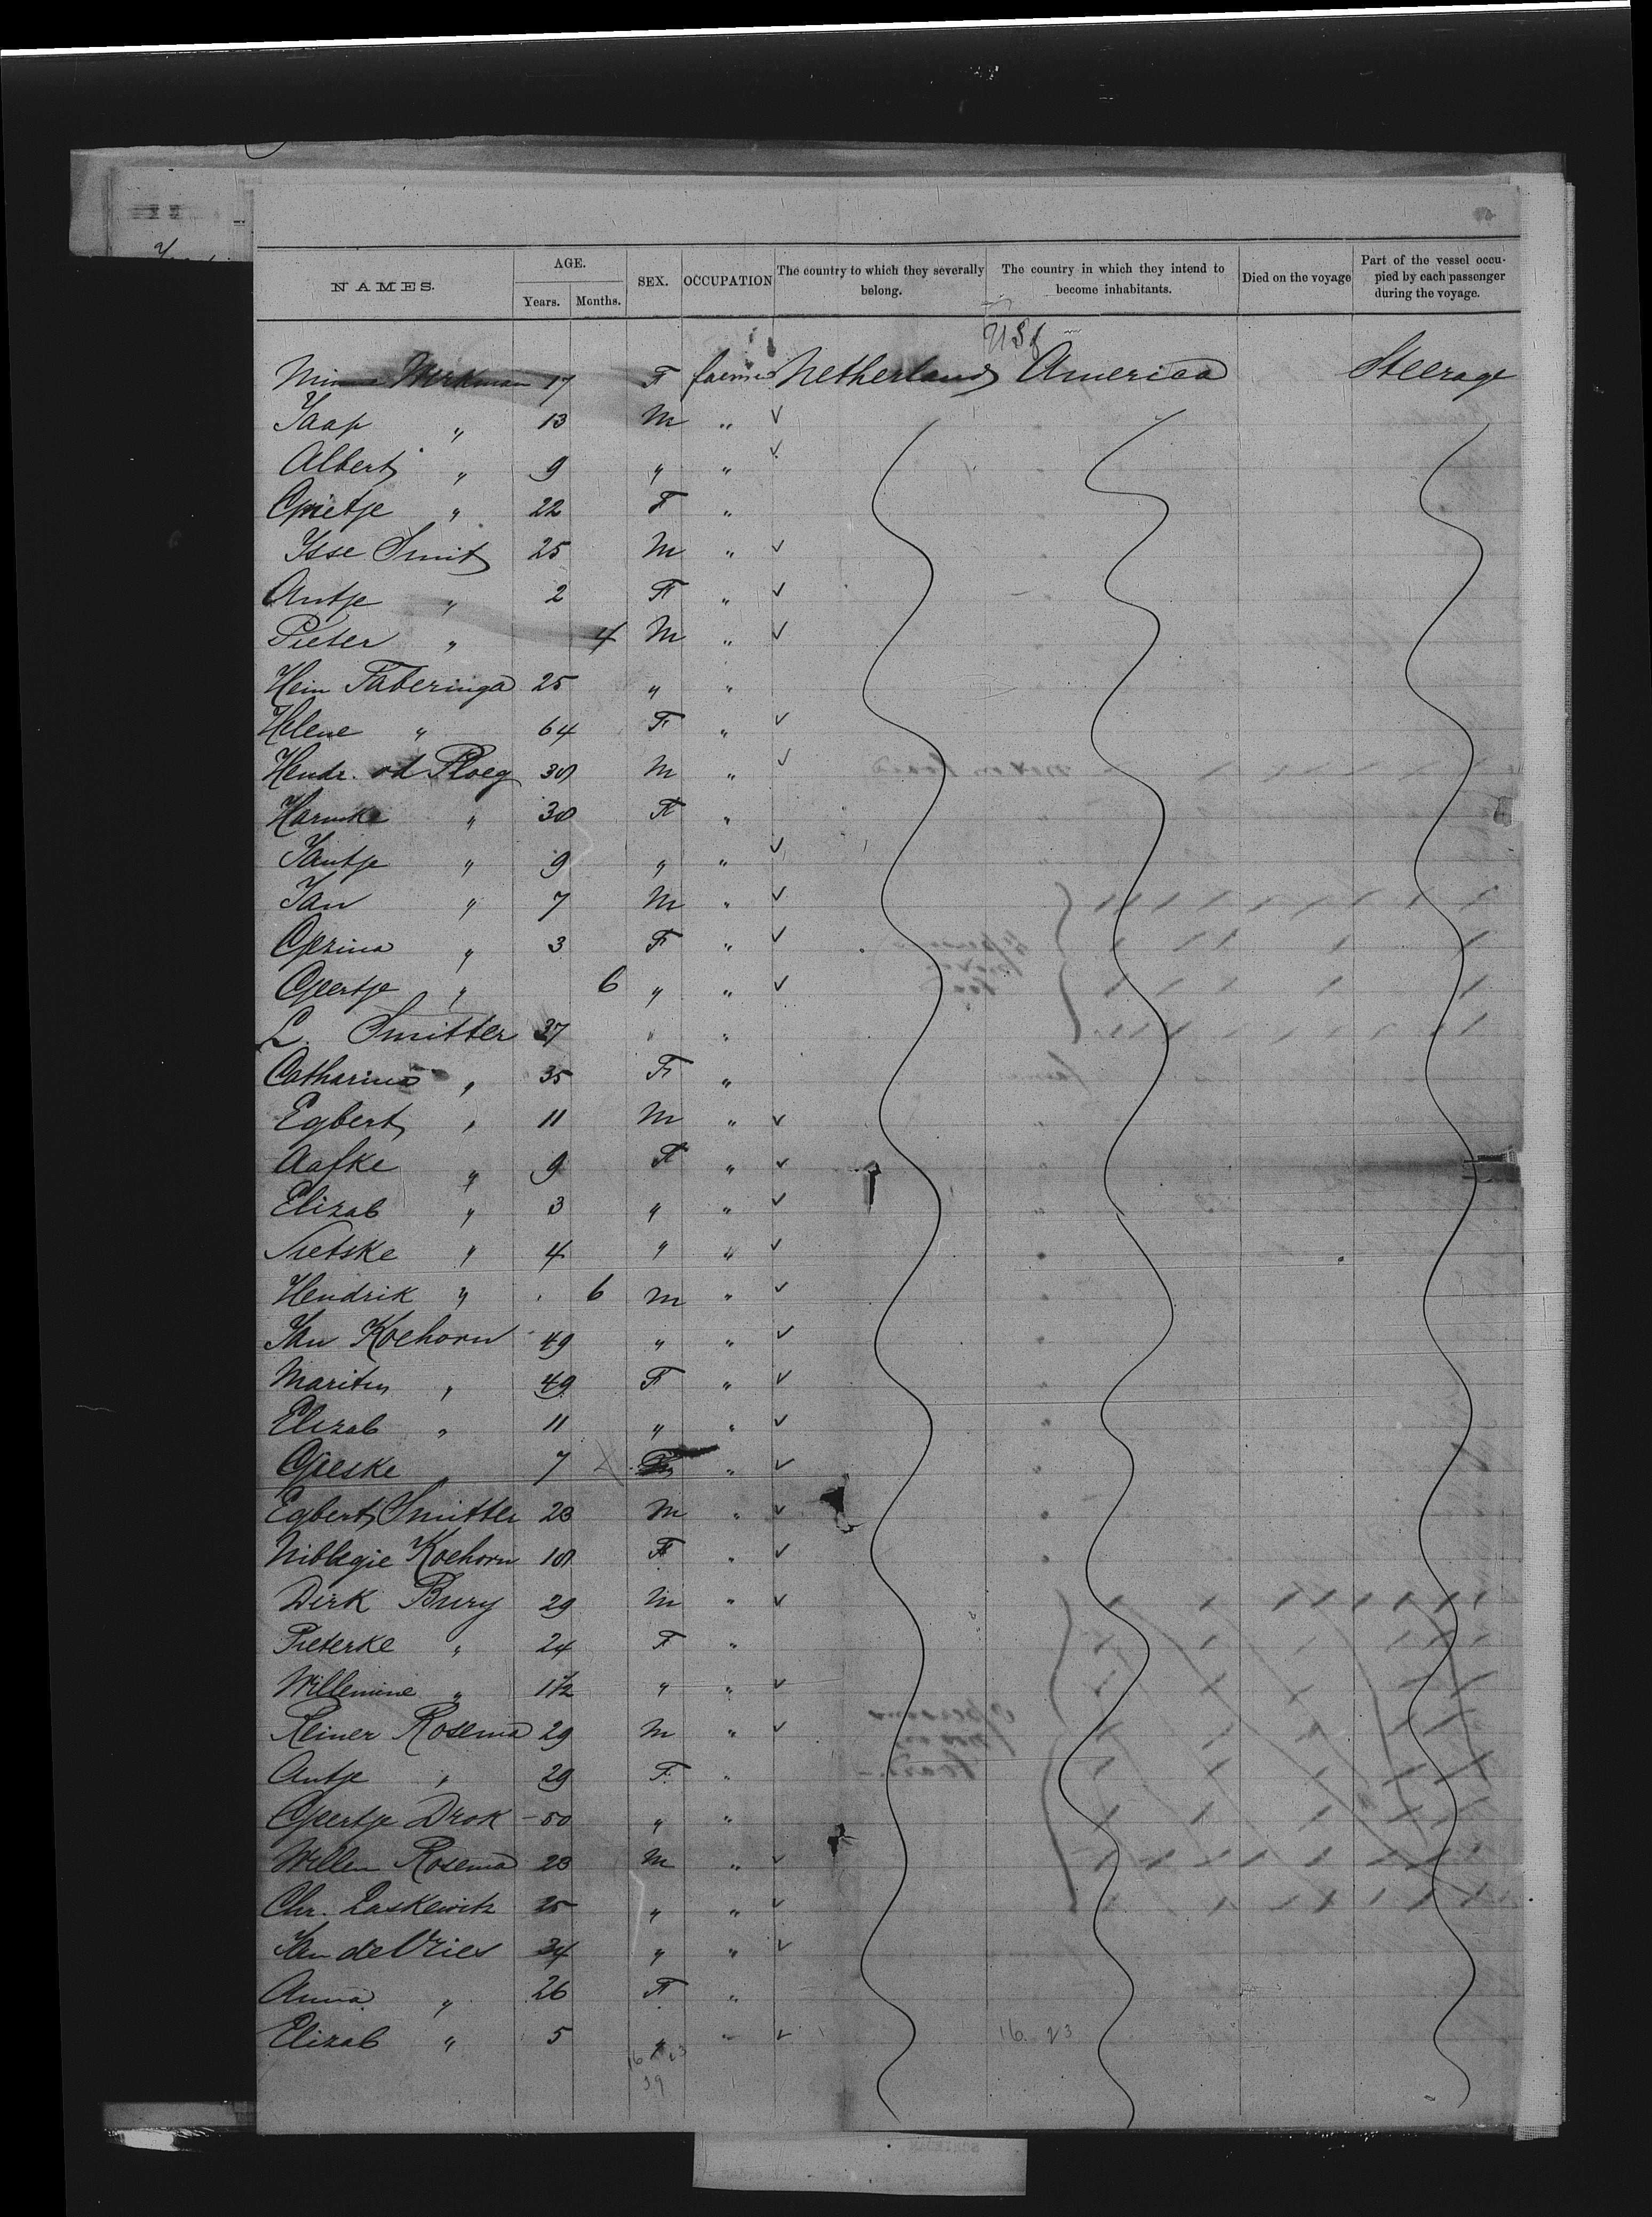 NAMES. AGE. Years. Months. SEX. OCCUPATION The country to which they severally belong. The country in which they intend to become inhabitants. Died on the voyage Part of the vessel occupied by each passenger during the voyage.
Werkman 17 F farmer Netherlands America Steerage
Jaap " 13 M " ✓
Albert " 9 " " ✓
Grietje " 22 F "
Ysse Smit 25 M " ✓
Antje " 2 F " ✓
Pieter " 4 M " ✓
Hein Taberinga 25 " "
Helene " 64 F " ✓
Hendr. vd Ploeg 38 M " ✓
Harmke " 38 F "
Jantje " 9 " " ✓
Jan " 7 M " ✓
Gezina " 3 F " ✓
Geertje " 6 " " ✓
L. Smitter 37 " "
Catharina " 35 F "
Egbert " 11 M " ✓
Aafke " 9 F " ✓
Elizab " 3 " " ✓
Sietske " 4 " " ✓
Hendrik " 6 M " ✓
Jan Koehorn 49 " " ✓
" 49 F " ✓
Elizab " 11 " " ✓
Geeske " 7 " ✓
Egbert Smitter 23 M " ✓
Koehorn 18 F " ✓
Dirk Bury 29 M " ✓
Pieterke " 24 F "
Willemine " 1 1/2 " " ✓
Reiner Rosema 29 M " ✓
Antje " 29 F "
Geertje Drok 50 " "
Willem Rosema 23 M " ✓
Chr. Laskewitz 25 " " ✓
Jan de Vries 34 " " ✓
Anna " 26 F "
Elizab " 5 " " ✓ 16. 23
39